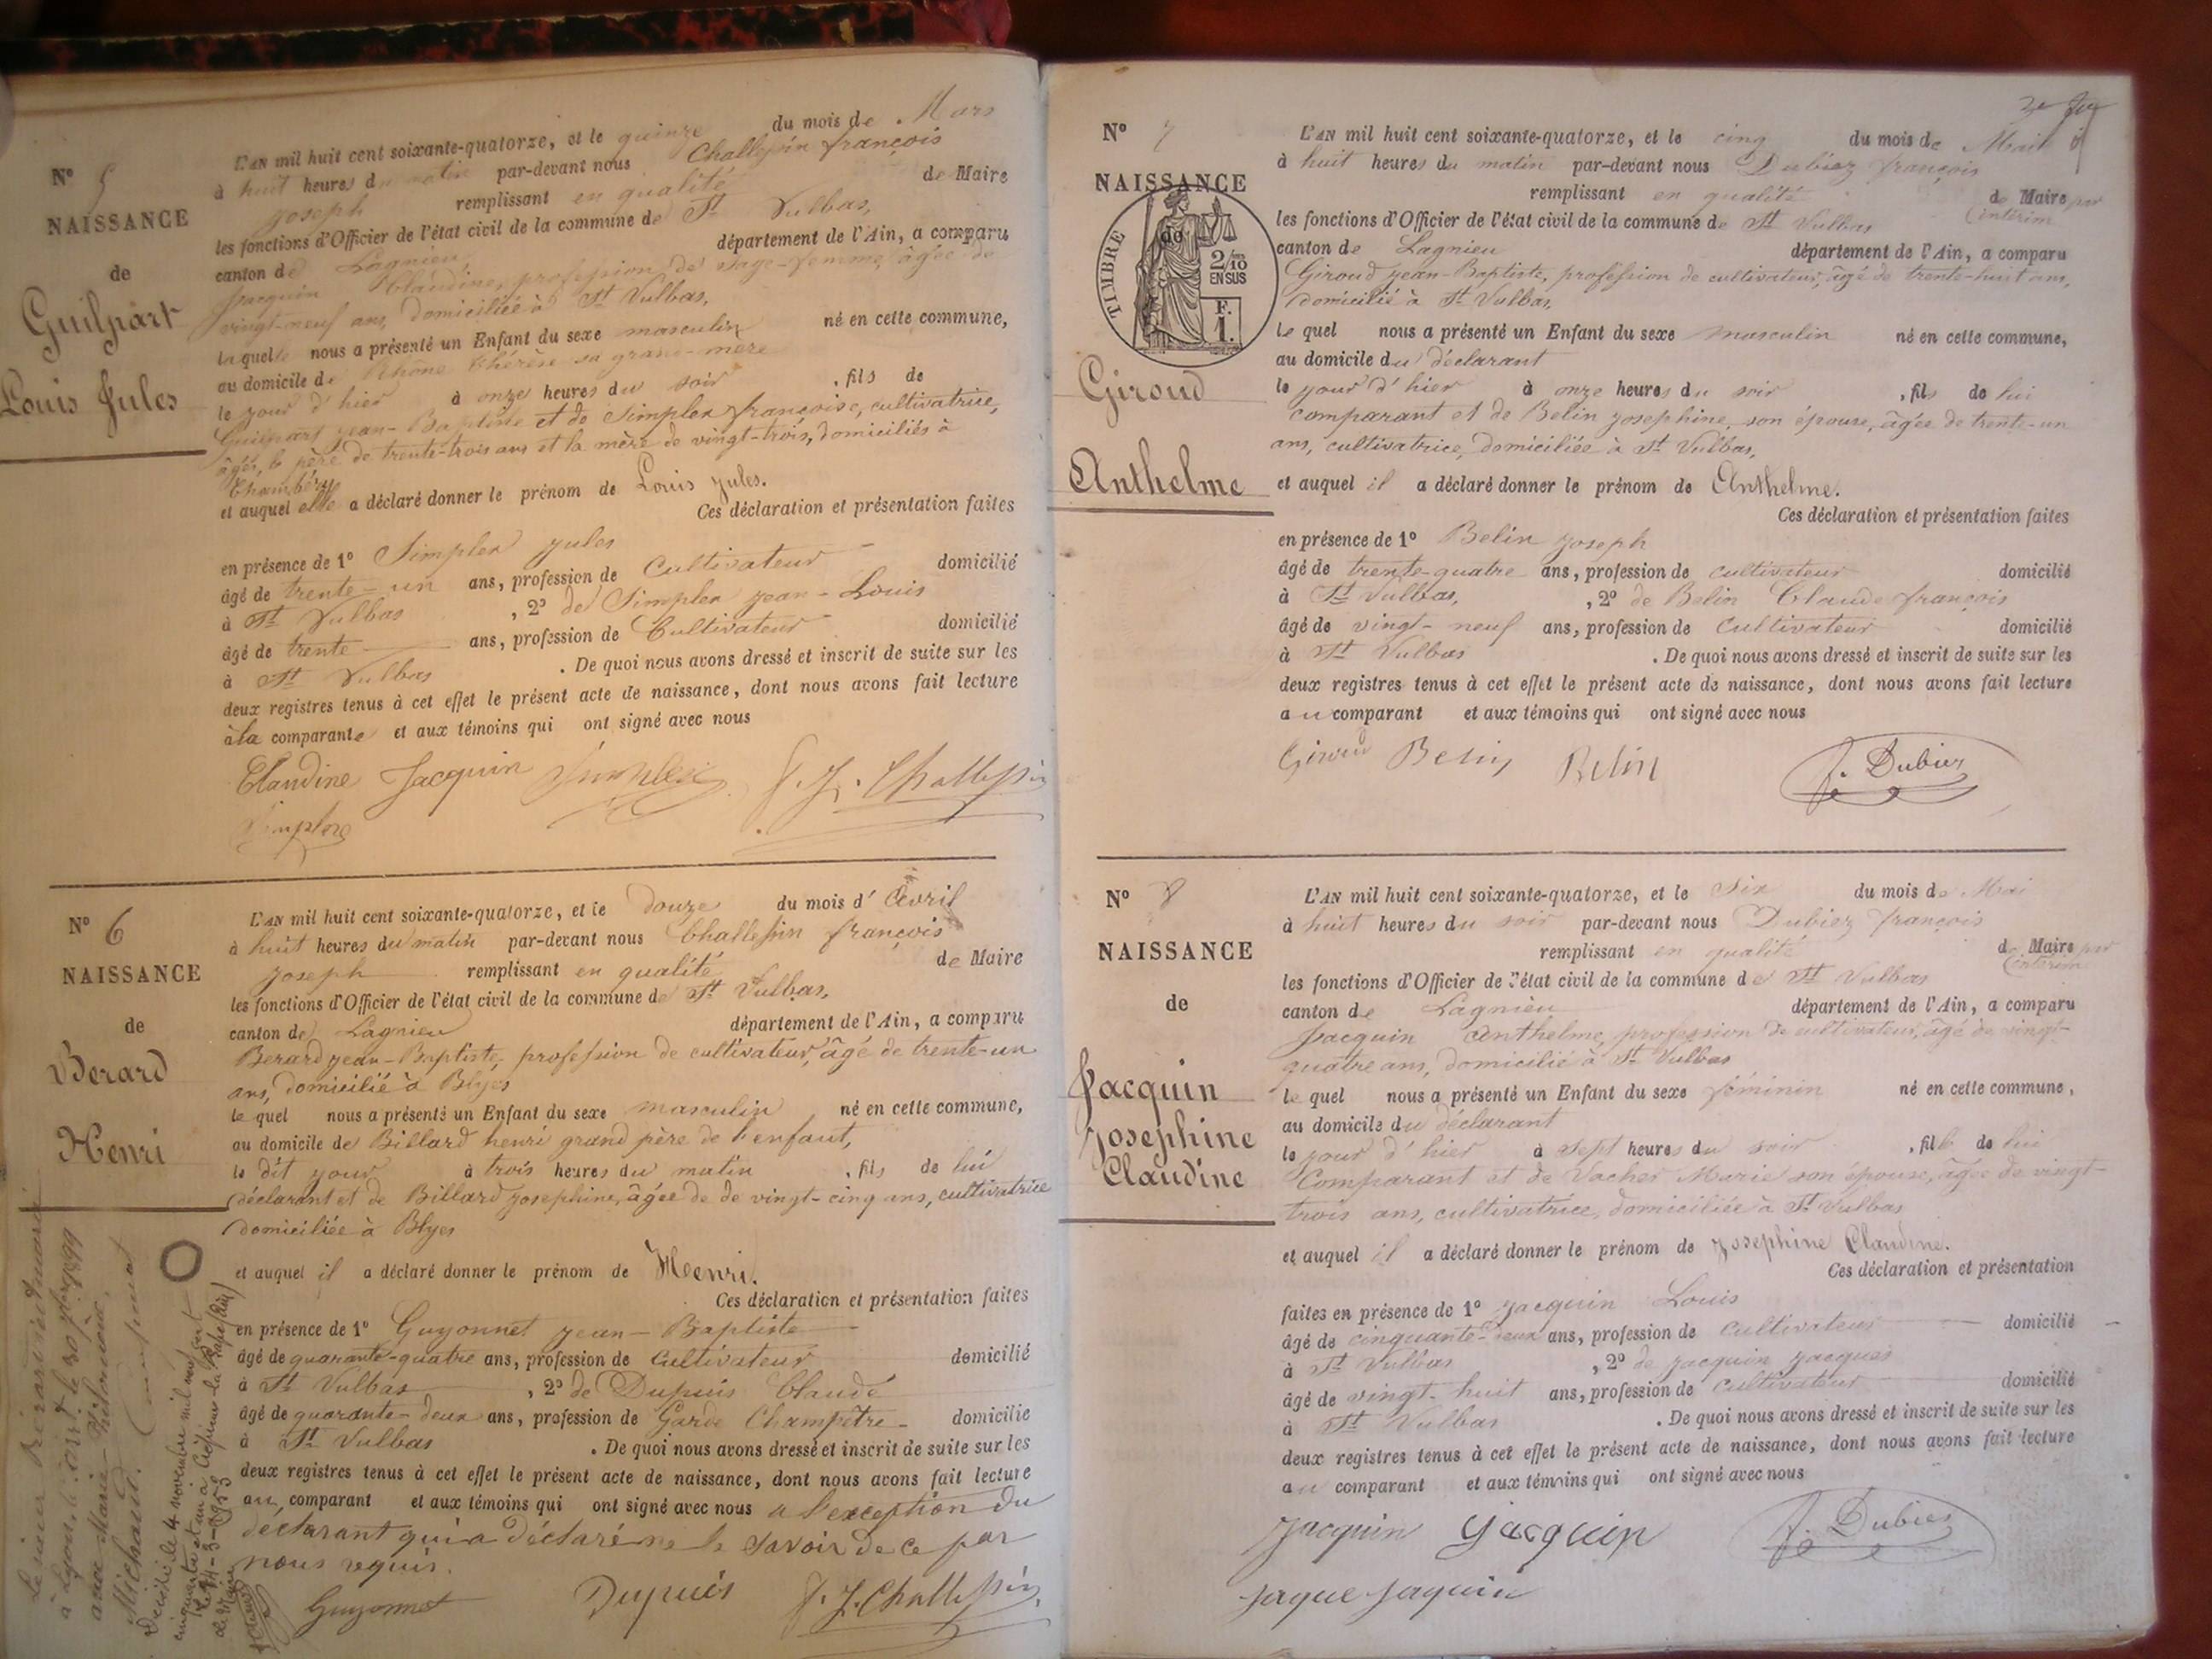 N° 5
NAISSANCE
de
Guilpart
Louis Jules
L'AN mil huit cent soixante-quatorze, et le quinze du mois de Mars
à huit heures du matin par-devant nous Challessin françois
joseph remplissant en qualité de Maire
les fonctions d'Officier de l'état civil de la commune de St Vulbas,
canton de Lagnieu département de l'Ain, a comparu
Jacquin Claudine, profession de sage-femme, âgée de
vingt-neuf ans, domiciliée à St Vulbas,
laquelle nous a présenté un Enfant du sexe masculin né en cette commune,
au domicile de Thérèse sa grand-mère
le jour d'hier à onze heures du soir, fils de
Guilpart jean-Baptiste et de Simplex françoise, cultivatrice,
âgés, le père de trente-trois ans et la mère de vingt-trois, domiciliés à
Chambéry
et auquel elle a déclaré donner le prénom de Louis Jules.
Ces déclaration et présentation faites
en présence de 1° Simplex jules
âgé de trente-un ans, profession de Cultivateur domicilié
à St Vulbas, 2° de Simplex jean-Louis
âgé de trente ans, profession de Cultivateur domicilié
à St Vulbas. De quoi nous avons dressé et inscrit de suite sur les
deux registres tenus à cet effet le présent acte de naissance, dont nous avons fait lecture
à la comparante et aux témoins qui ont signé avec nous
Claudine Jacquin Simplex f. J. Challessin
Simplex
N° 6
NAISSANCE
de
Berard
Henri
L'AN mil huit cent soixante-quatorze, et le douze du mois d'Avril
à huit heures du matin par-devant nous Challessin françois
joseph remplissant en qualité de Maire
les fonctions d'Officier de l'état civil de la commune de St Vulbas,
canton de Lagnieu département de l'Ain, a comparu
Berard jean-Baptiste, profession de cultivateur, âgé de trente-un
ans, domicilié à Blyes
lequel nous a présenté un Enfant du sexe masculin, né en cette commune,
au domicile de Billard henri grand père de l'enfant,
le dit jour à trois heures du matin, fils de lui
déclarant et de Billard josephine, âgée de de vingt-cinq ans, cultivatrice
domiciliée à Blyes
et auquel il a déclaré donner le prénom de Henri.
Ces déclaration et présentation faites
en présence de 1° Guyonnet jean-Baptiste
âgé de quarante-quatre ans, profession de Cultivateur domicilié
à St Vulbas, 2° de Dupuis Claude
âgé de quarante-deux ans, profession de Garde Champêtre domicilié
à St Vulbas. De quoi nous avons dressé et inscrit de suite sur les
deux registres tenus à cet effet le présent acte de naissance, dont nous avons fait lecture
au comparant et aux témoins qui ont signé avec nous a l'exception du
déclarant qui a déclaré ne le savoir de ce par
nous requis.
Guyonnet Dupuis f. J. Challessin
Le sieur Bérard
à Lyon, le 30 1899
avec Marie
Michaud.
Décédé le 4 novembre mil neuf cent
cinquante et un à
le 14-3-1953
N° 7
NAISSANCE
de
TIMBRE
2/10
EN SUS
F.
1.
Giroud
Anthelme
L'AN mil huit cent soixante-quatorze, et le cinq du mois de Mai
à huit heures du matin par-devant nous Dubiez françois
remplissant en qualité de Maire par
intérim
les fonctions d'Officier de l'état civil de la commune de St Vulbas
canton de Lagnieu département de l'Ain, a comparu
Giroud jean-Baptiste, profession de cultivateur, âgé de trente-huit ans,
domicilié à St Vulbas,
lequel nous a présenté un Enfant du sexe masculin né en cette commune,
au domicile du déclarant
le jour d'hier à onze heures du soir, fils de lui
comparant et de Belin josephine, son épouse, âgée de trente-un
ans, cultivatrice, domiciliée à St Vulbas,
et auquel il a déclaré donner le prénom de Anthelme.
Ces déclaration et présentation faites
en présence de 1° Belin joseph
âgé de trente-quatre ans, profession de cultivateur domicilié
à St Vulbas, 2° de Belin Claude françois
âgé de vingt-neuf ans, profession de Cultivateur domicilié
à St Vulbas. De quoi nous avons dressé et inscrit de suite sur les
deux registres tenus à cet effet le présent acte de naissance, dont nous avons fait lecture
au comparant et aux témoins qui ont signé avec nous
Giroud Belin Belin f. Dubiez
N° 8
NAISSANCE
de
Jacquin
Josephine
Claudine
L'AN mil huit cent soixante-quatorze, et le Six du mois de Mai
à huit heures du soir par-devant nous Dubiez françois
remplissant en qualité de Maire par
intérim
les fonctions d'Officier de l'état civil de la commune de St Vulbas
canton de Lagnieu département de l'Ain, a comparu
Jacquin Anthelme, profession de cultivateur, âgé de vingt-
quatre ans, domicilié à St Vulbas
lequel nous a présenté un Enfant du sexe féminin né en cette commune,
au domicile du déclarant
le jour d'hier à sept heures du soir, fille de lui
Comparant et de Vacher Marie son épouse, âgée de vingt-
trois ans, cultivatrice, domiciliée à St Vulbas
et auquel il a déclaré donner le prénom de Josephine Claudine.
Ces déclaration et présentation
faites en présence de 1° Jacquin Louis
âgé de cinquante-deux ans, profession de Cultivateur domicilié
à St Vulbas, 2° de jacquin jacques
âgé de vingt-huit ans, profession de Cultivateur domicilié
à St Vulbas. De quoi nous avons dressé et inscrit de suite sur les
deux registres tenus à cet effet le présent acte de naissance, dont nous avons fait lecture
au comparant et aux témoins qui ont signé avec nous
Jacquin Jacquin f. Dubiez
Jaque Jaquin